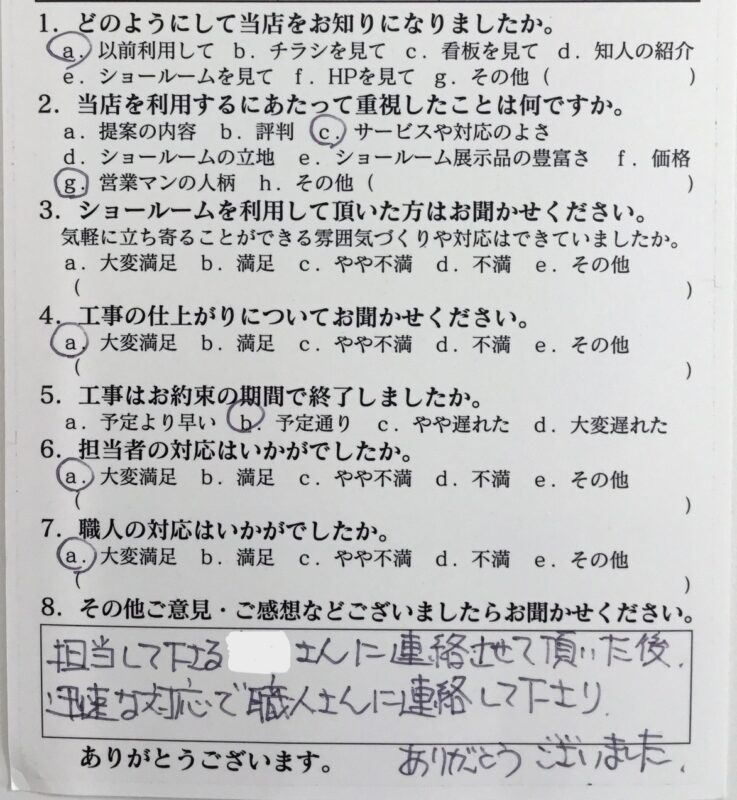 1．どのようにして当店をお知りになりましたか。
a．以前利用して b．チラシを見て c．看板を見て d．知人の紹介
e．ショールームを見て f．HPを見て g．その他（　　　）
2．当店を利用するにあたって重視したことは何ですか。
a．提案の内容 b．評判 c．サービスや対応のよさ
d．ショールームの立地 e．ショールーム展示品の豊富さ f．価格
g．営業マンの人柄 h．その他（　　　）
3．ショールームを利用して頂いた方はお聞かせください。
気軽に立ち寄ることができる雰囲気づくりや対応はできていましたか。
a．大変満足 b．満足 c．やや不満 d．不満 e．その他
（　　　）
4．工事の仕上がりについてお聞かせください。
a．大変満足 b．満足 c．やや不満 d．不満 e．その他
（　　　）
5．工事はお約束の期間で終了しましたか。
a．予定より早い b．予定通り c．やや遅れた d．大変遅れた
6．担当者の対応はいかがでしたか。
a．大変満足 b．満足 c．やや不満 d．不満 e．その他
（　　　）
7．職人の対応はいかがでしたか。
a．大変満足 b．満足 c．やや不満 d．不満 e．その他
（　　　）
8．その他ご意見・ご感想などございましたらお聞かせください。
担当して下さる　　さんに連絡させて頂いた後、
迅速な対応で職人さんに連絡して下さり、
ありがとうございます。 ありがとうございました。